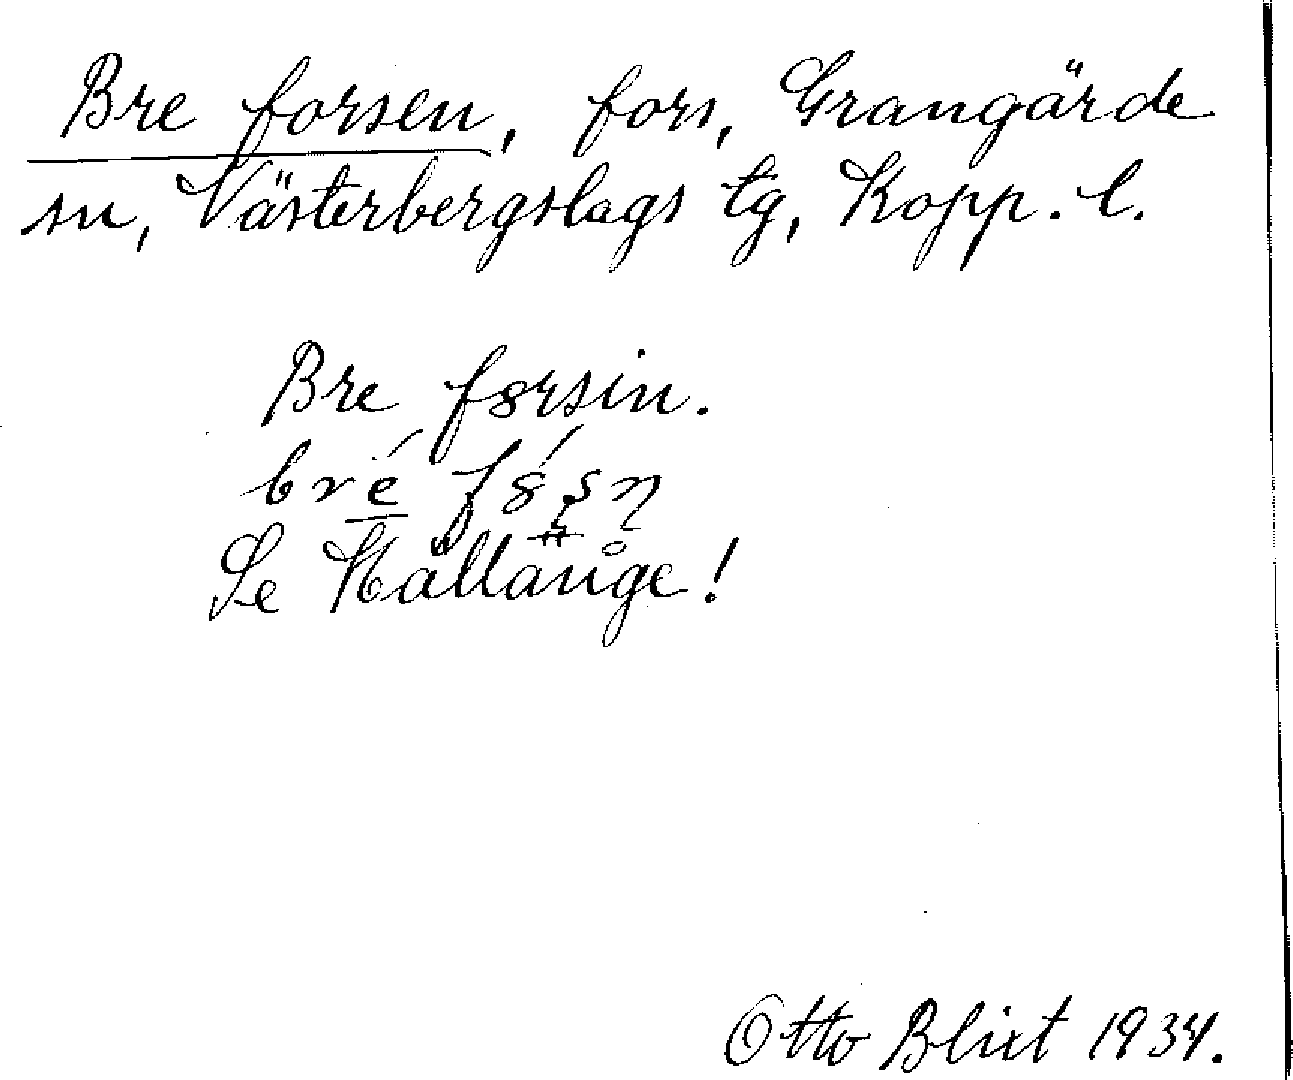 Bre forsen, fors, Grangärde
sn, Västerbergslags tg, Kopp. l.
Bre forsin.
bré
Se Hållånge!
Otto Blixt 1934.